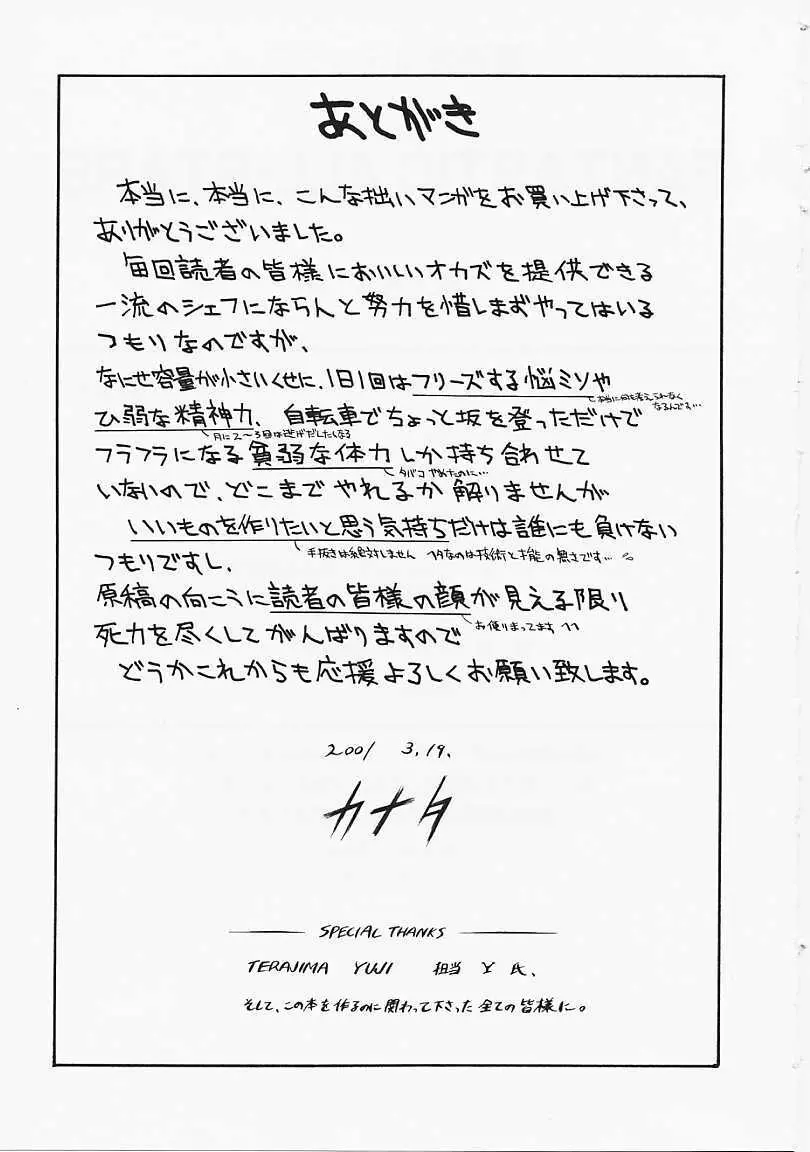 あとがき
本当に、本当に、こんな拙いマンガをお買い上げ下さって、
ありがとうございました。
毎回読者の皆様においしいオカズを提供できる
一流のシェフにならんと努力を惜しまずやってはいる
つもりなのですが、
なにせ容量が小さいくせに、1日1回はフリーズする悩ミソや
本当に何も考えられなく
なるんです…
ひ弱な精神力、自転車でちょっと坂を登っただけで
月に2〜3回は逃げだしたくなる
フラフラになる貧弱な体力しか持ち合わせて
タバコやめたのに…
いないので、どこまでやれるか解りませんが
いいものを作りたいと思う気持ちだけは誰にも負けない
手抜きは絶対しません ヘタなのは技術と才能の無さです…
つもりですし、
原稿の向こうに読者の皆様の顔が見える限り
お便りまってます ^^
死力を尽くしてがんばりますので
どうかこれからも応援よろしくお願い致します。
2001 3.19.
カナタ
SPECIAL THANKS
TERAJIMA YUJI 担当 Y 氏、
そして、この本を作るのに関わって下さった全ての皆様に。